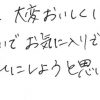 、大変おいしくい
いで お気に入りで
ひにしようと思い